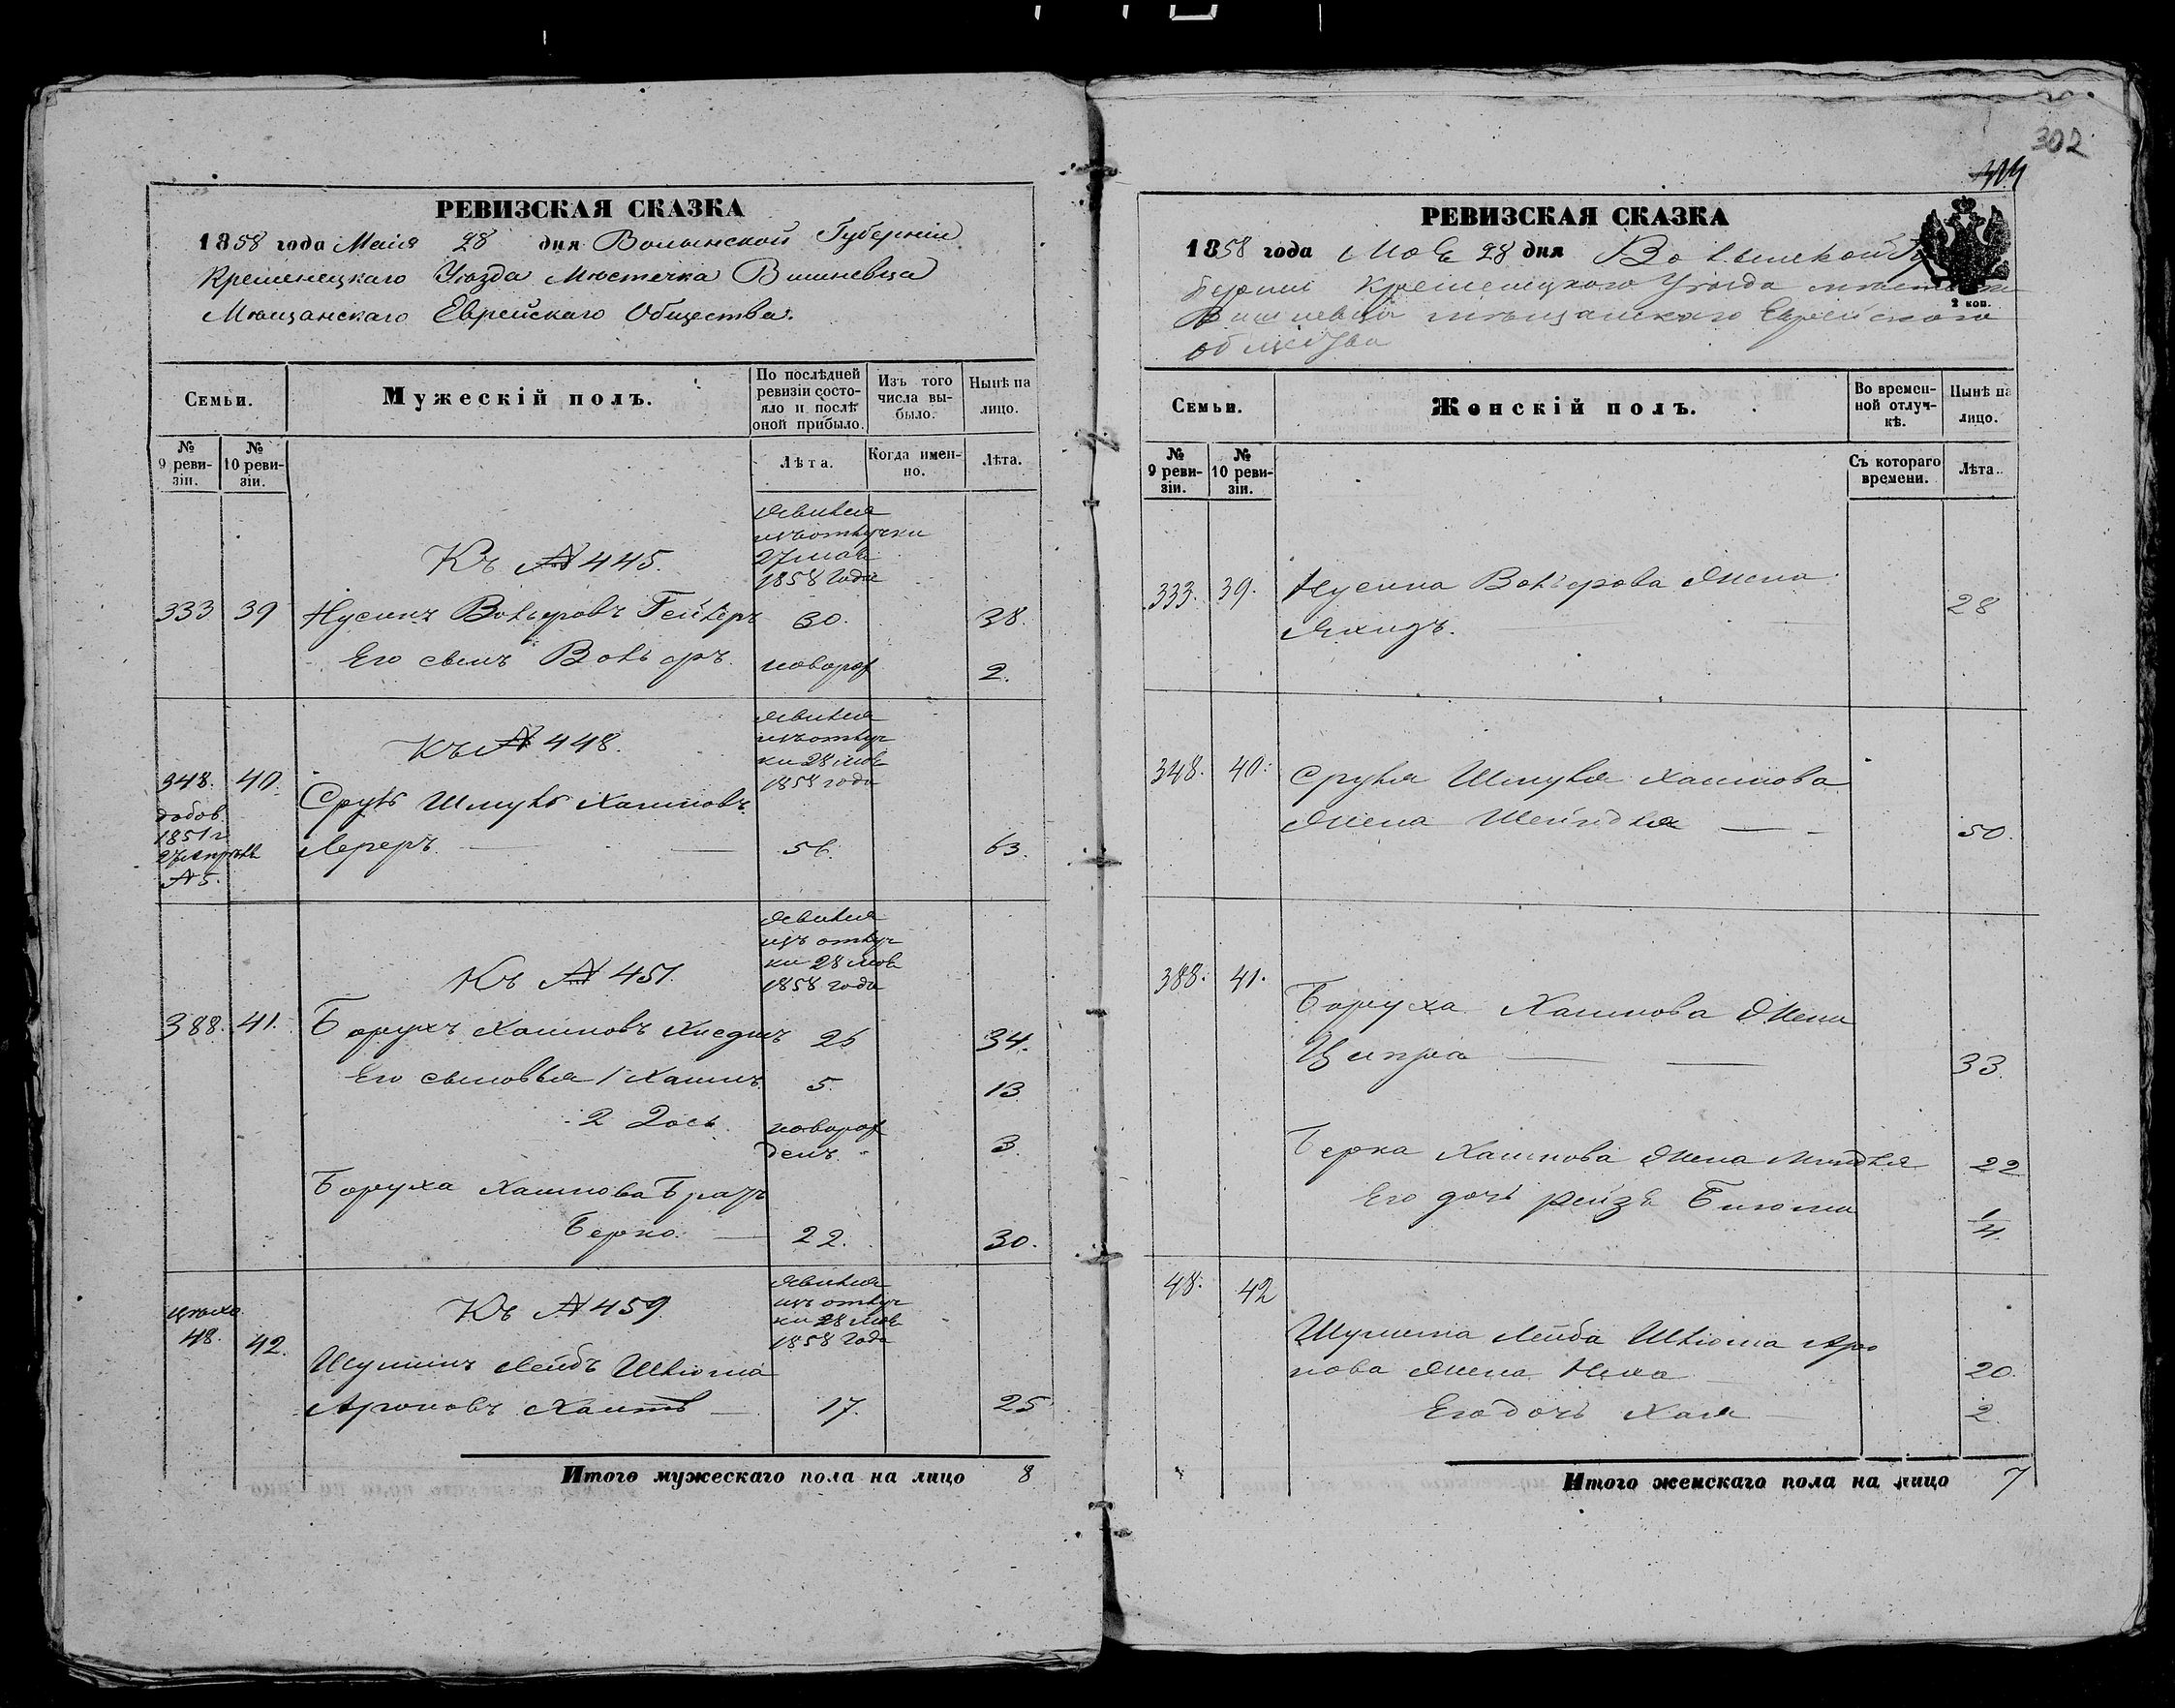 302
РЕВИЗСКАЯ СКАЗКА
1858 года Маія 28 дня Волынской Губерніи
Кременецкаго Уѣзда Мѣстечка Вишневца
Мѣщанскаго Еврейскаго Общества.
Семьи.
Мужескій полъ.
По послѣдней ревизіи состояло и послѣ оной прибыло.
Изъ того числа выбыло.
Нынѣ на лицо.
№ 9 ревизіи.
№ 10 ревизіи.
Лѣта.
Когда именно.
Лѣта.
явился
изъ отлучки
27 мая
1858 года
Къ № 445.
333 39 Нусинъ Вольфовъ 30. 38.
Его сынъ Вольфъ. новорож 2.
явился
изъ отлуч
ки 28 мая
1858 года
Къ № 448.
348. 40. Сруль Шмуль Хаимовъ
добов.
1851 г
27 Апрѣля
№ 5.
Лереръ. 56. 63.
явился
изъ отлуч
ки 28 мая
1858 года
Къ № 451.
388. 41. Борухъ Хаимовъ 26 34.
Его сыновья 1 Хаимъ 5. 13
2 Іось новорож
денъ. 3.
Боруха Хаимова Братъ
Берко. 22. 30.
явился
изъ отлуч
ки 28 мая
1858 года
Къ № 459.
48. 42.
Лейбъ Шліома
Ароновъ 17. 25
Итого мужескаго пола на лицо 8
РЕВИЗСКАЯ СКАЗКА
1858 года Мая 28 дня Волынской Гу
берніи Кременецкаго Уѣзда мѣстечка
Вишневца мѣщанскаго Еврейскаго
общества
2 коп.
Семьи.
Женскій полъ.
Во временной отлучкѣ.
Нынѣ на лицо.
№ 9 ревизіи.
№ 10 ревизіи.
Съ котораго времени.
Лѣта.
333. 39. Нусина Вольфова жена
28
348. 40. Сруля Шмуля Хаимова
жена Шейндля 50.
388. 41.
Боруха Хаимова жена
Ципра 33.
Берка Хаимова жена 22
Его дочь Рейзя 1/4
48. 42
Лейба Шліома Аро
нова жена Неха 20.
Его дочь Хая 2.
Итого женскаго пола на лицо 7